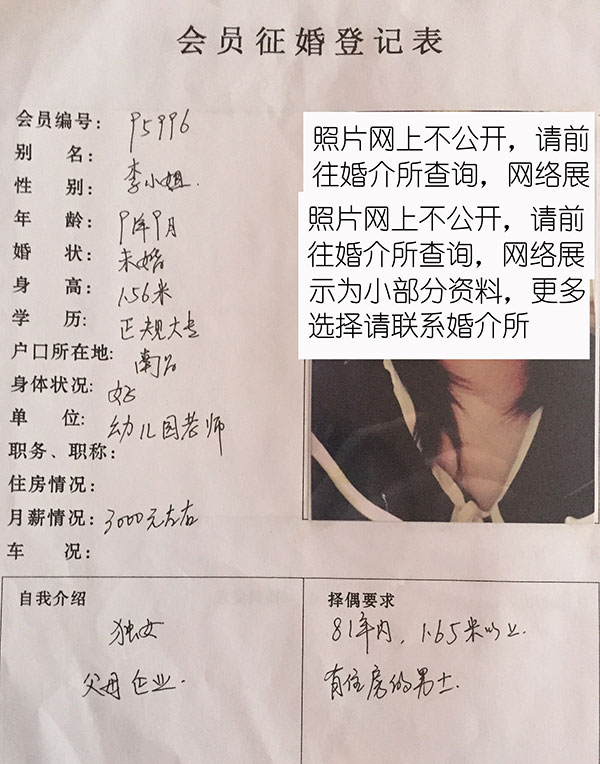 会员征婚登记表
会员编号: 95996
别 名:
性 别: 李小姐.
年 龄: 91年9月
婚 状: 未婚
身 高: 1.56米
学 历: 正规大专
户口所在地: 南昌
身体状况: 好
单 位: 幼儿园老师
职务、职称:
住房情况:
月薪情况: 3000元左右
车 况:
照片网上不公开，请前
往婚介所查询，网络展
照片网上不公开，请前
往婚介所查询，网络展
示为小部分资料，更多
选择请联系婚介所
自我介绍
独女
父母企业.
择偶要求
81年内，1.65米以上
有住房的男士.